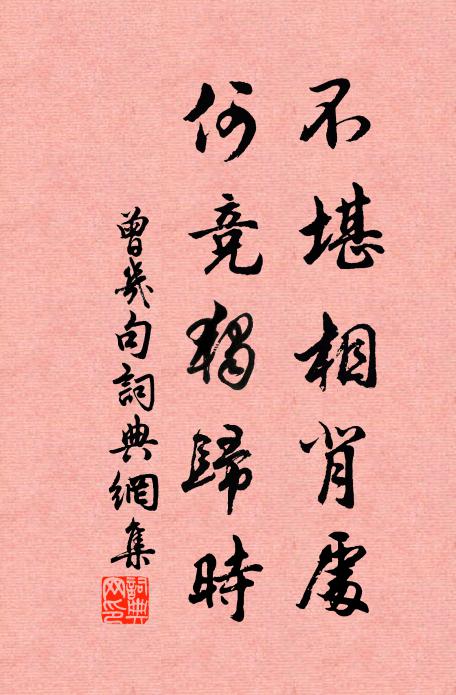 不堪相背處
何竞獨歸時
曾幾句詞典網集
詞典